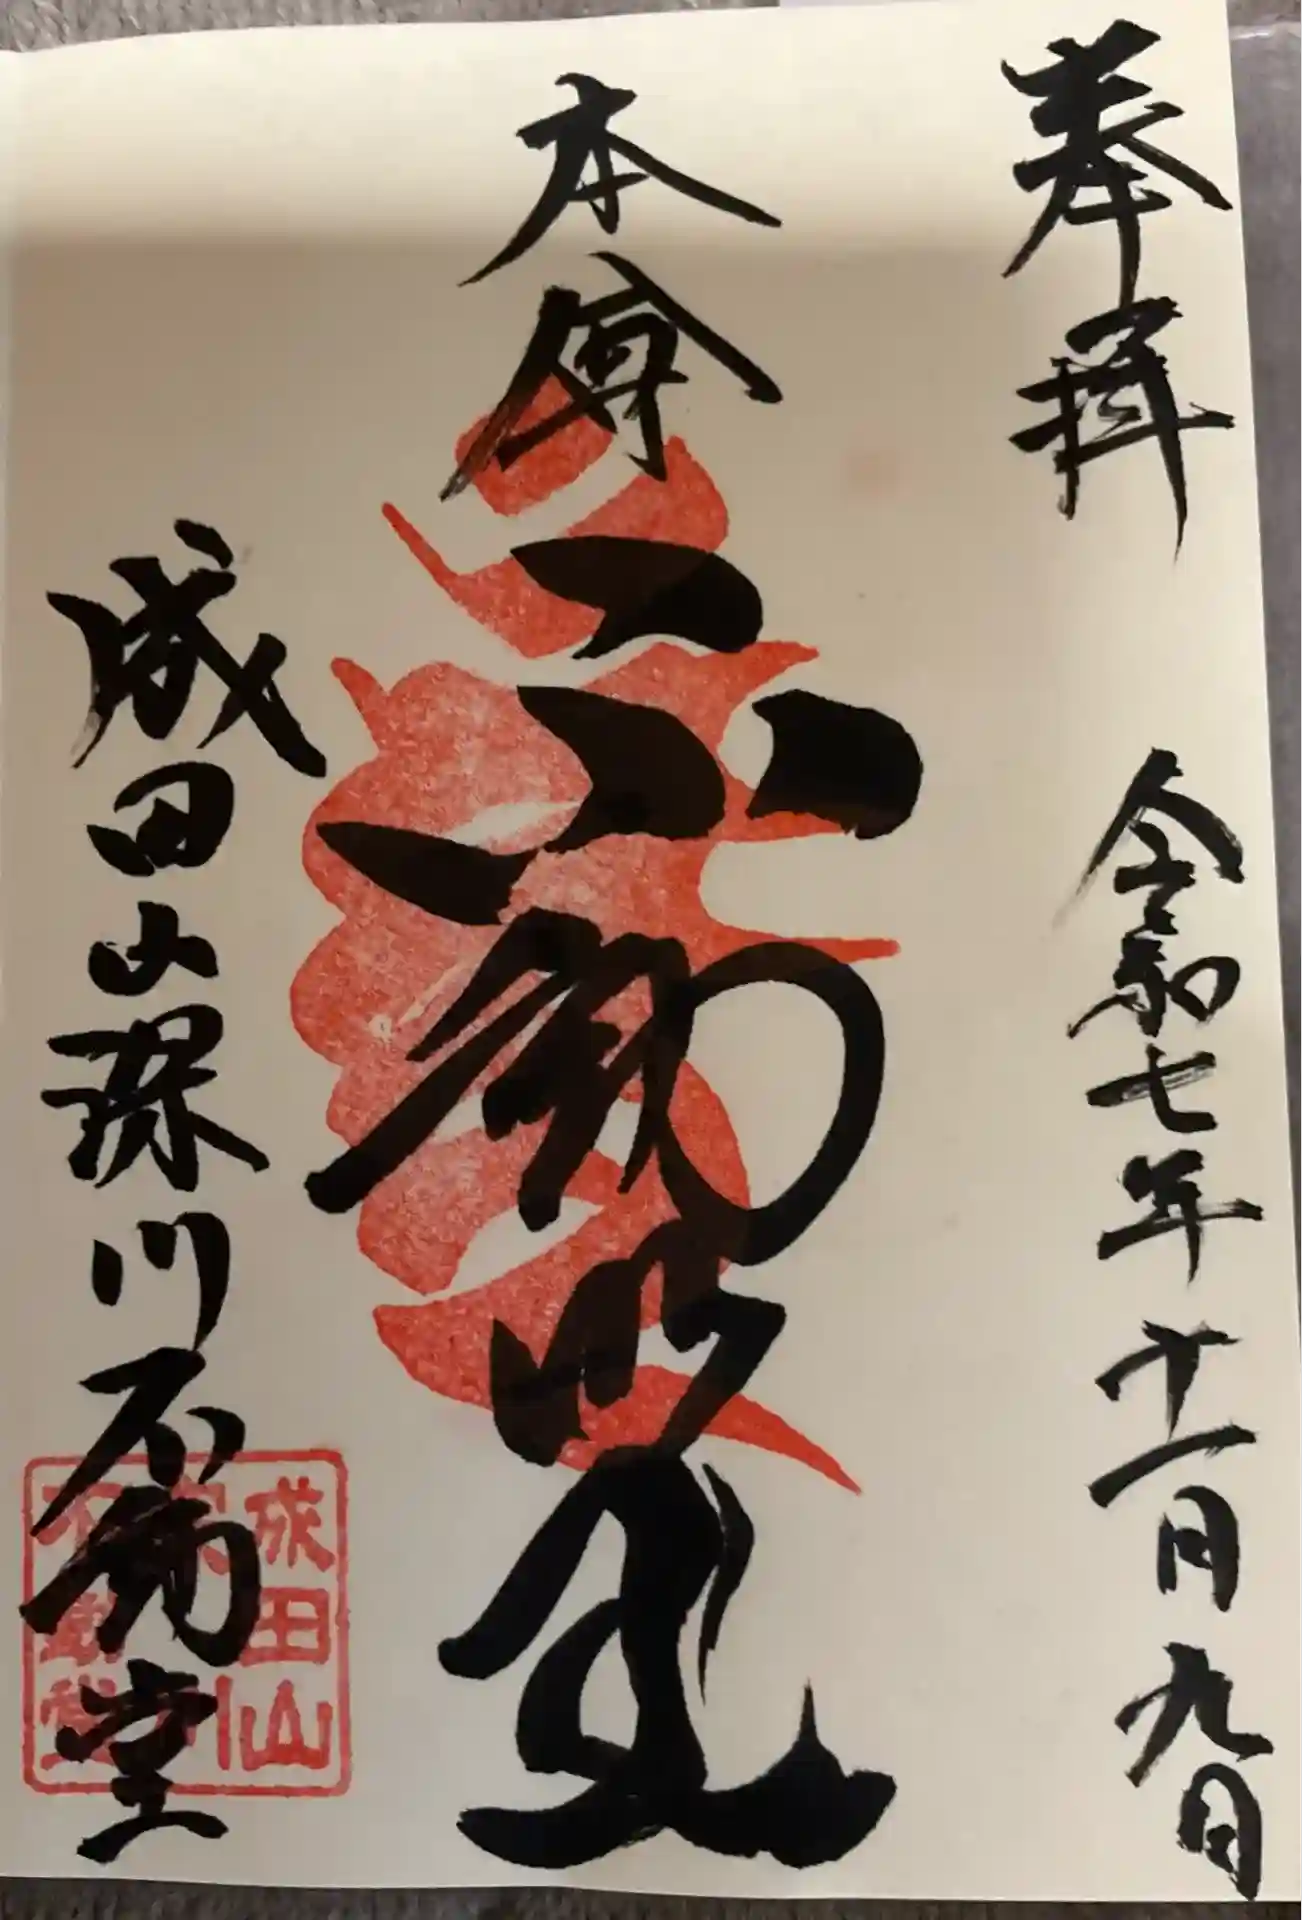 奉拝
令和七年十一月九日
本尊
不動明王
成田山深川不動堂
成田山
深川
不動堂